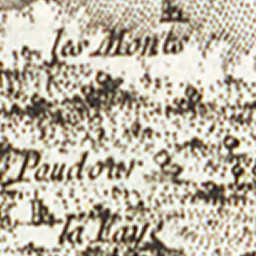 les Monts
Poudour
la Lay